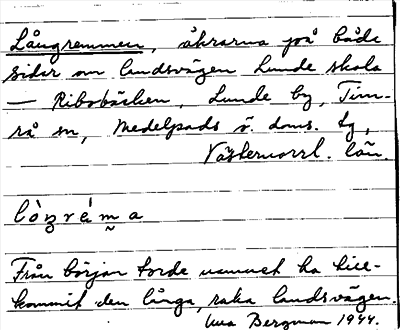 Långremmen, åkrarna på både
sidor om landsvägen Lunde skola
— Ribobäcken, Lunde by, Tim-
rå sn, Medelpads ö. doms. tg,
Västernorrl. län.
lòŋrém̰a
Från början torde namnet ha till-
kommit den långa, raka landsvägen.
Bergman 1944.